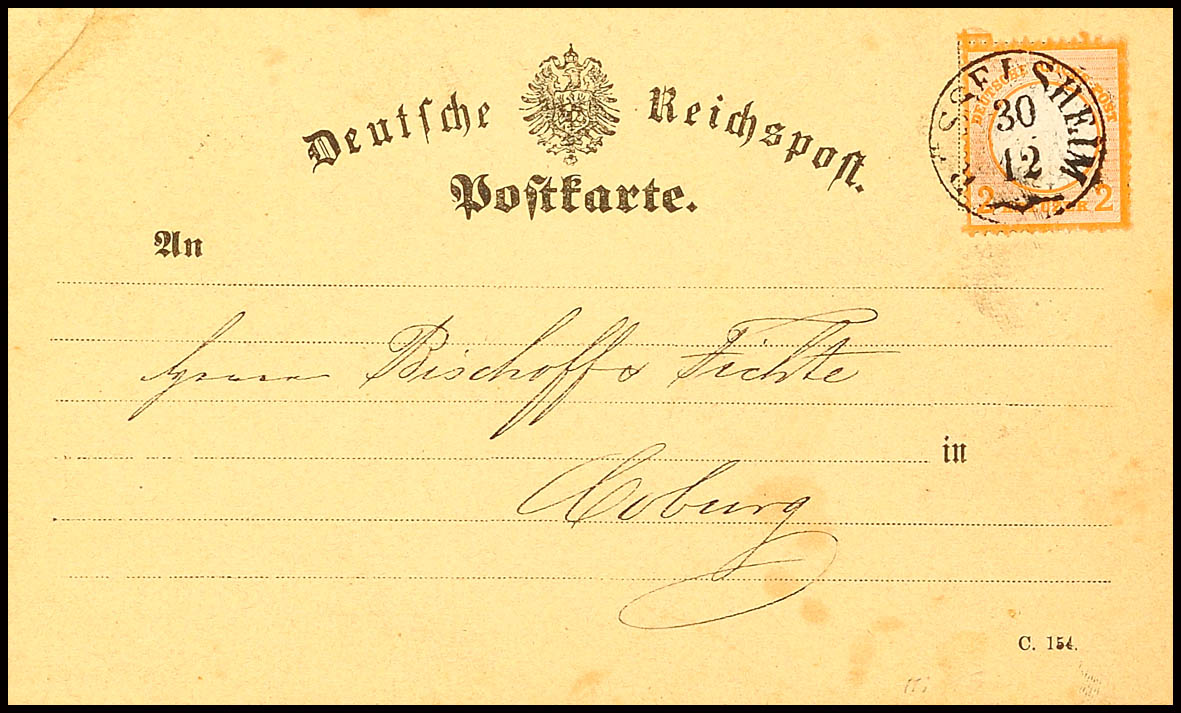 Deutsche Reichspost.
Postkarte.
RÜSSELSHEIM
30
12
DEUTSCHE REICHS-POST
2 KREUZER 2
An
Herren Bischoff & Fichte
in
Coburg
C. 154.